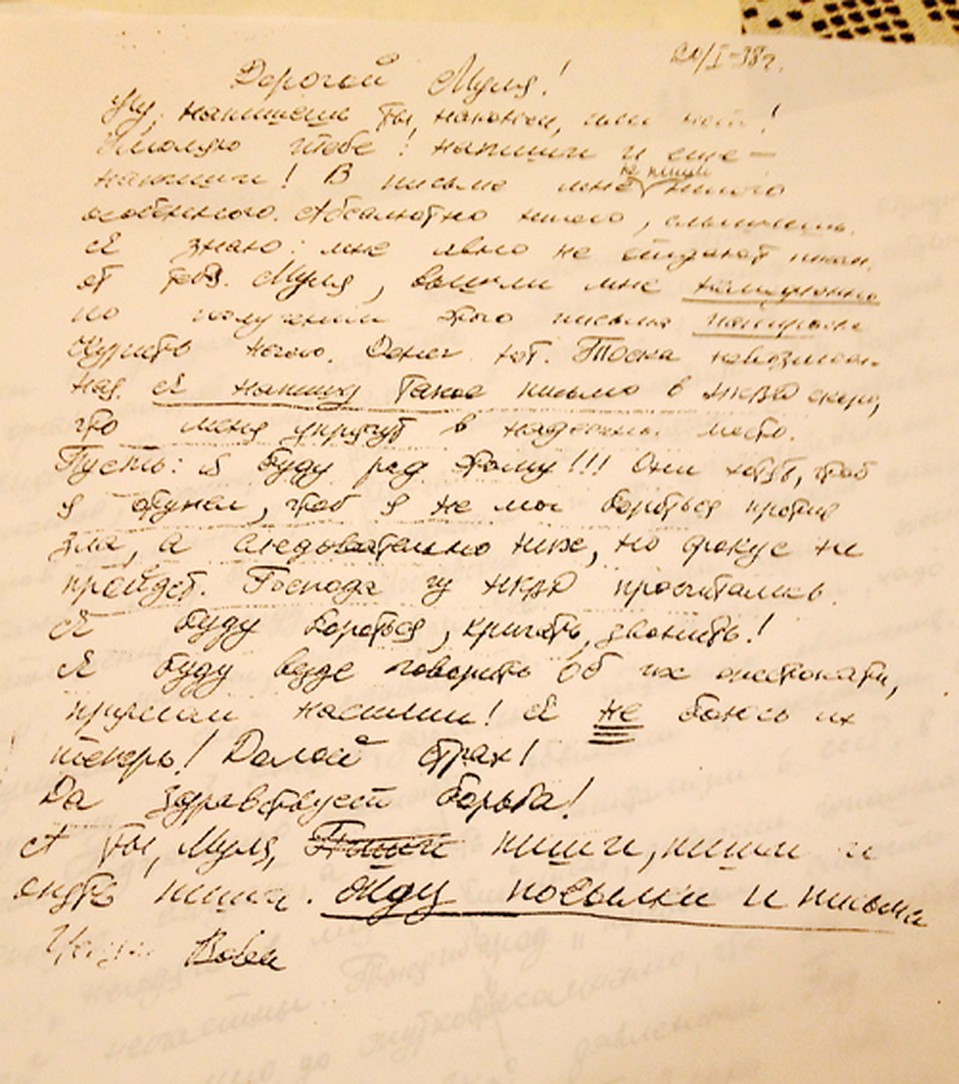 20/I-38г.
Дорогой Муля!
Ну, напишешь ты, наконец, или нет!
Умоляю тебя: напиши и еще —
напиши! В письме мне не пиши ничего
особенного. Абсолютно ничего, слышишь.
Я знаю: мне явно не отдают писем
от тебя. Муля, вышли мне немедленно
по получении этого письма папиросы
Курить нечего. Денег нет. Тоска невозмож-
ная. Я напишу такое письмо в НКВД скоро,
что меня упрячут в надежное место.
Пусть: я буду рад этому!!! Они хотят, чтоб
я я не мог бороться против
зла, а следовательно ниже, но фокус не
пройдет. Господа из НКВД просчитались.
Я буду бороться, кричать, звонить!
Я буду везде говорить об их жестокости,
насилии! Я не боюсь их
теперь! Долой страх!
Да здравствует борьба!
А ты, Муля, пиши, пиши и
опять пиши. Жду посылки и письма
Вова